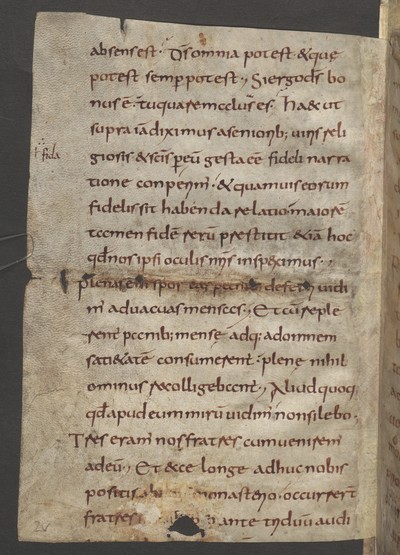 absens est. Ds omnia potest. & que
potest semp potest., Si ergo ds bo
nus ē. tu quasem cclus es. Haec ut
supra iā diximus a seniorib; uiris reli
ł fida
giosis & scīs p eū gesta eē fideli narra
tione conperim̄. & quamuis eorum
fidelis sit habenda relatio. maiorē
tamen fidē rerū prestitit etiā hoc
qđ nos ipsi oculis nr̄is inspeximus.,
uidi
m̄ ad uacuas mensas., Et cū reple
rent panib; mensę adq; ad omnem
sati&atē consumerent. plene nihil
ominus recolligebant., Aliud quoq;
qđ apud eum mirū uidim̄ non silebo.
Tres eram̄ nos fratres cum uenirem̄
ad eū., Et ecce longe adhuc nobis
positis monasterio. occurrert̄
fratres ante triduū audi
2v